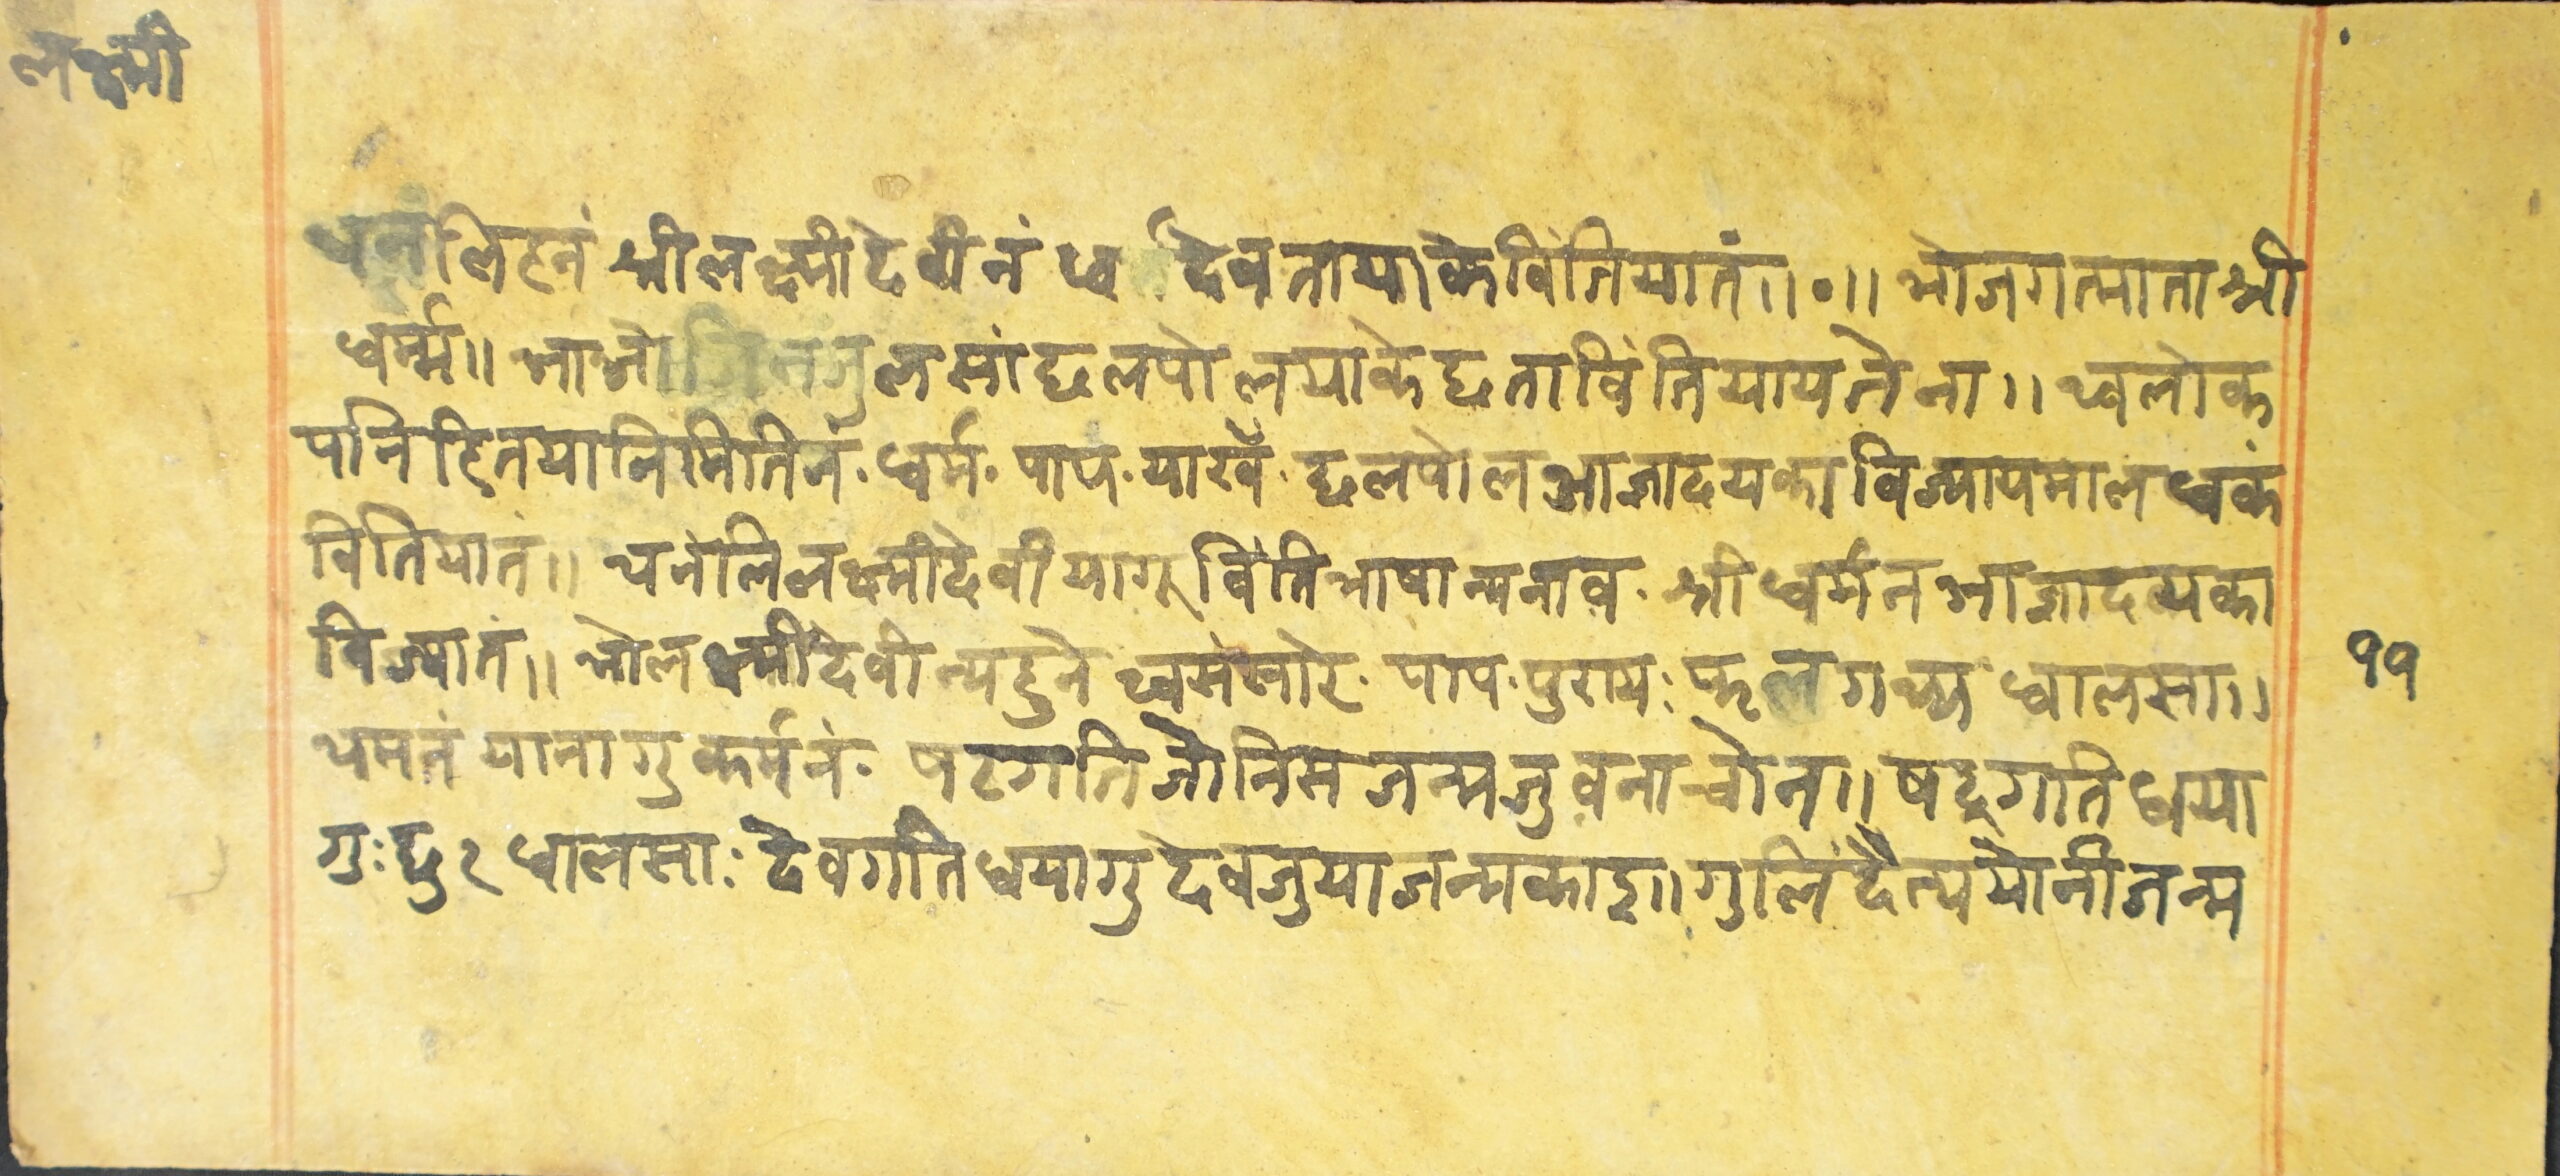 लक्ष्मी
थनंलिहनं श्रीलक्ष्मीदेवीनं धर्मदेवतायाके विंतियातं॥०॥ भोजगत्माताश्री
धर्म्म॥ भाभो जिनंजुलसां छलपोलयाके छता विंतियायतेना॥ थ्वलोक
पनि हितयानिमितिनं· धर्म· पाप· याखँ· छलपोल आज्ञादयका विज्यायमाल धकं
विंतियातं॥ थनंलि लक्ष्मीदेवीयागू विंतिभाषा न्यनाव· श्रीधर्मन आज्ञादयका
विज्यातं॥ भोलक्ष्मीदेवी न्यहुने थ्वसंसारे· पाप· पुराय: फल गथ्य धालसा॥
थमनं यानागु कर्मनं· षटगति जोनिस जन्मजुवनाचोन॥ षट्गति धया
गु: छु२ धालसा: देवगति धयागु देवजुया जन्मकाइ॥ गुलिं दैत्ययोनी जन्म
११